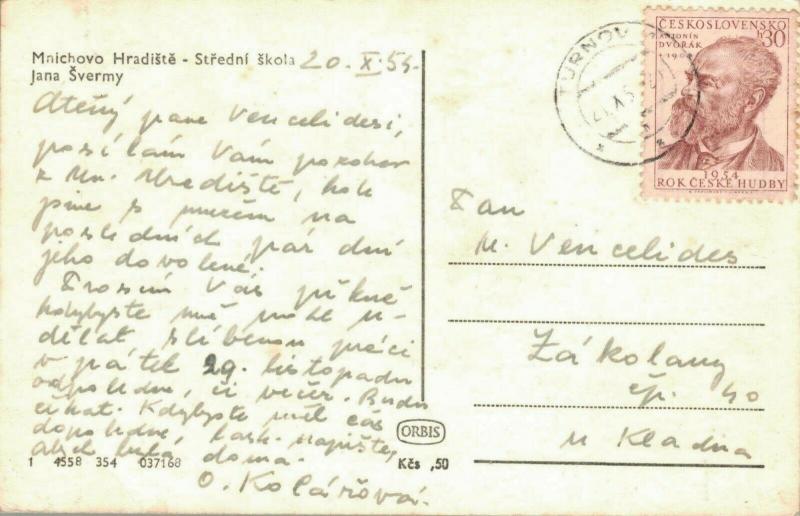 Mnichovo Hradiště - Střední škola
Jana Švermy
20. X. 54.
Ctěný pane Vencelidesi,
posílám Vám pozdrav
z Mn. Hradiště, kde
jsme s mužem na
posledních pár dní
jeho dovolené.
Prosím Vás pěkně
kdybyste mně mohl u-
dělat slíbenou práci
v pátek 29. listopadu
odpoledne, či večer. Budu
čekat. Kdybyste měl čas
dopoledne, lask. napište,
abych byla doma.
O. Kolářová.
1 4558 354 037168
ORBIS
Kčs ,50
TURNOV
ČESKOSLOVENSKO
ANTONÍN
DVOŘÁK
30
1954
ROK ČESKÉ HUDBY
Pan
M. Vencelides
Zákolany
čp. 40
u Kladna